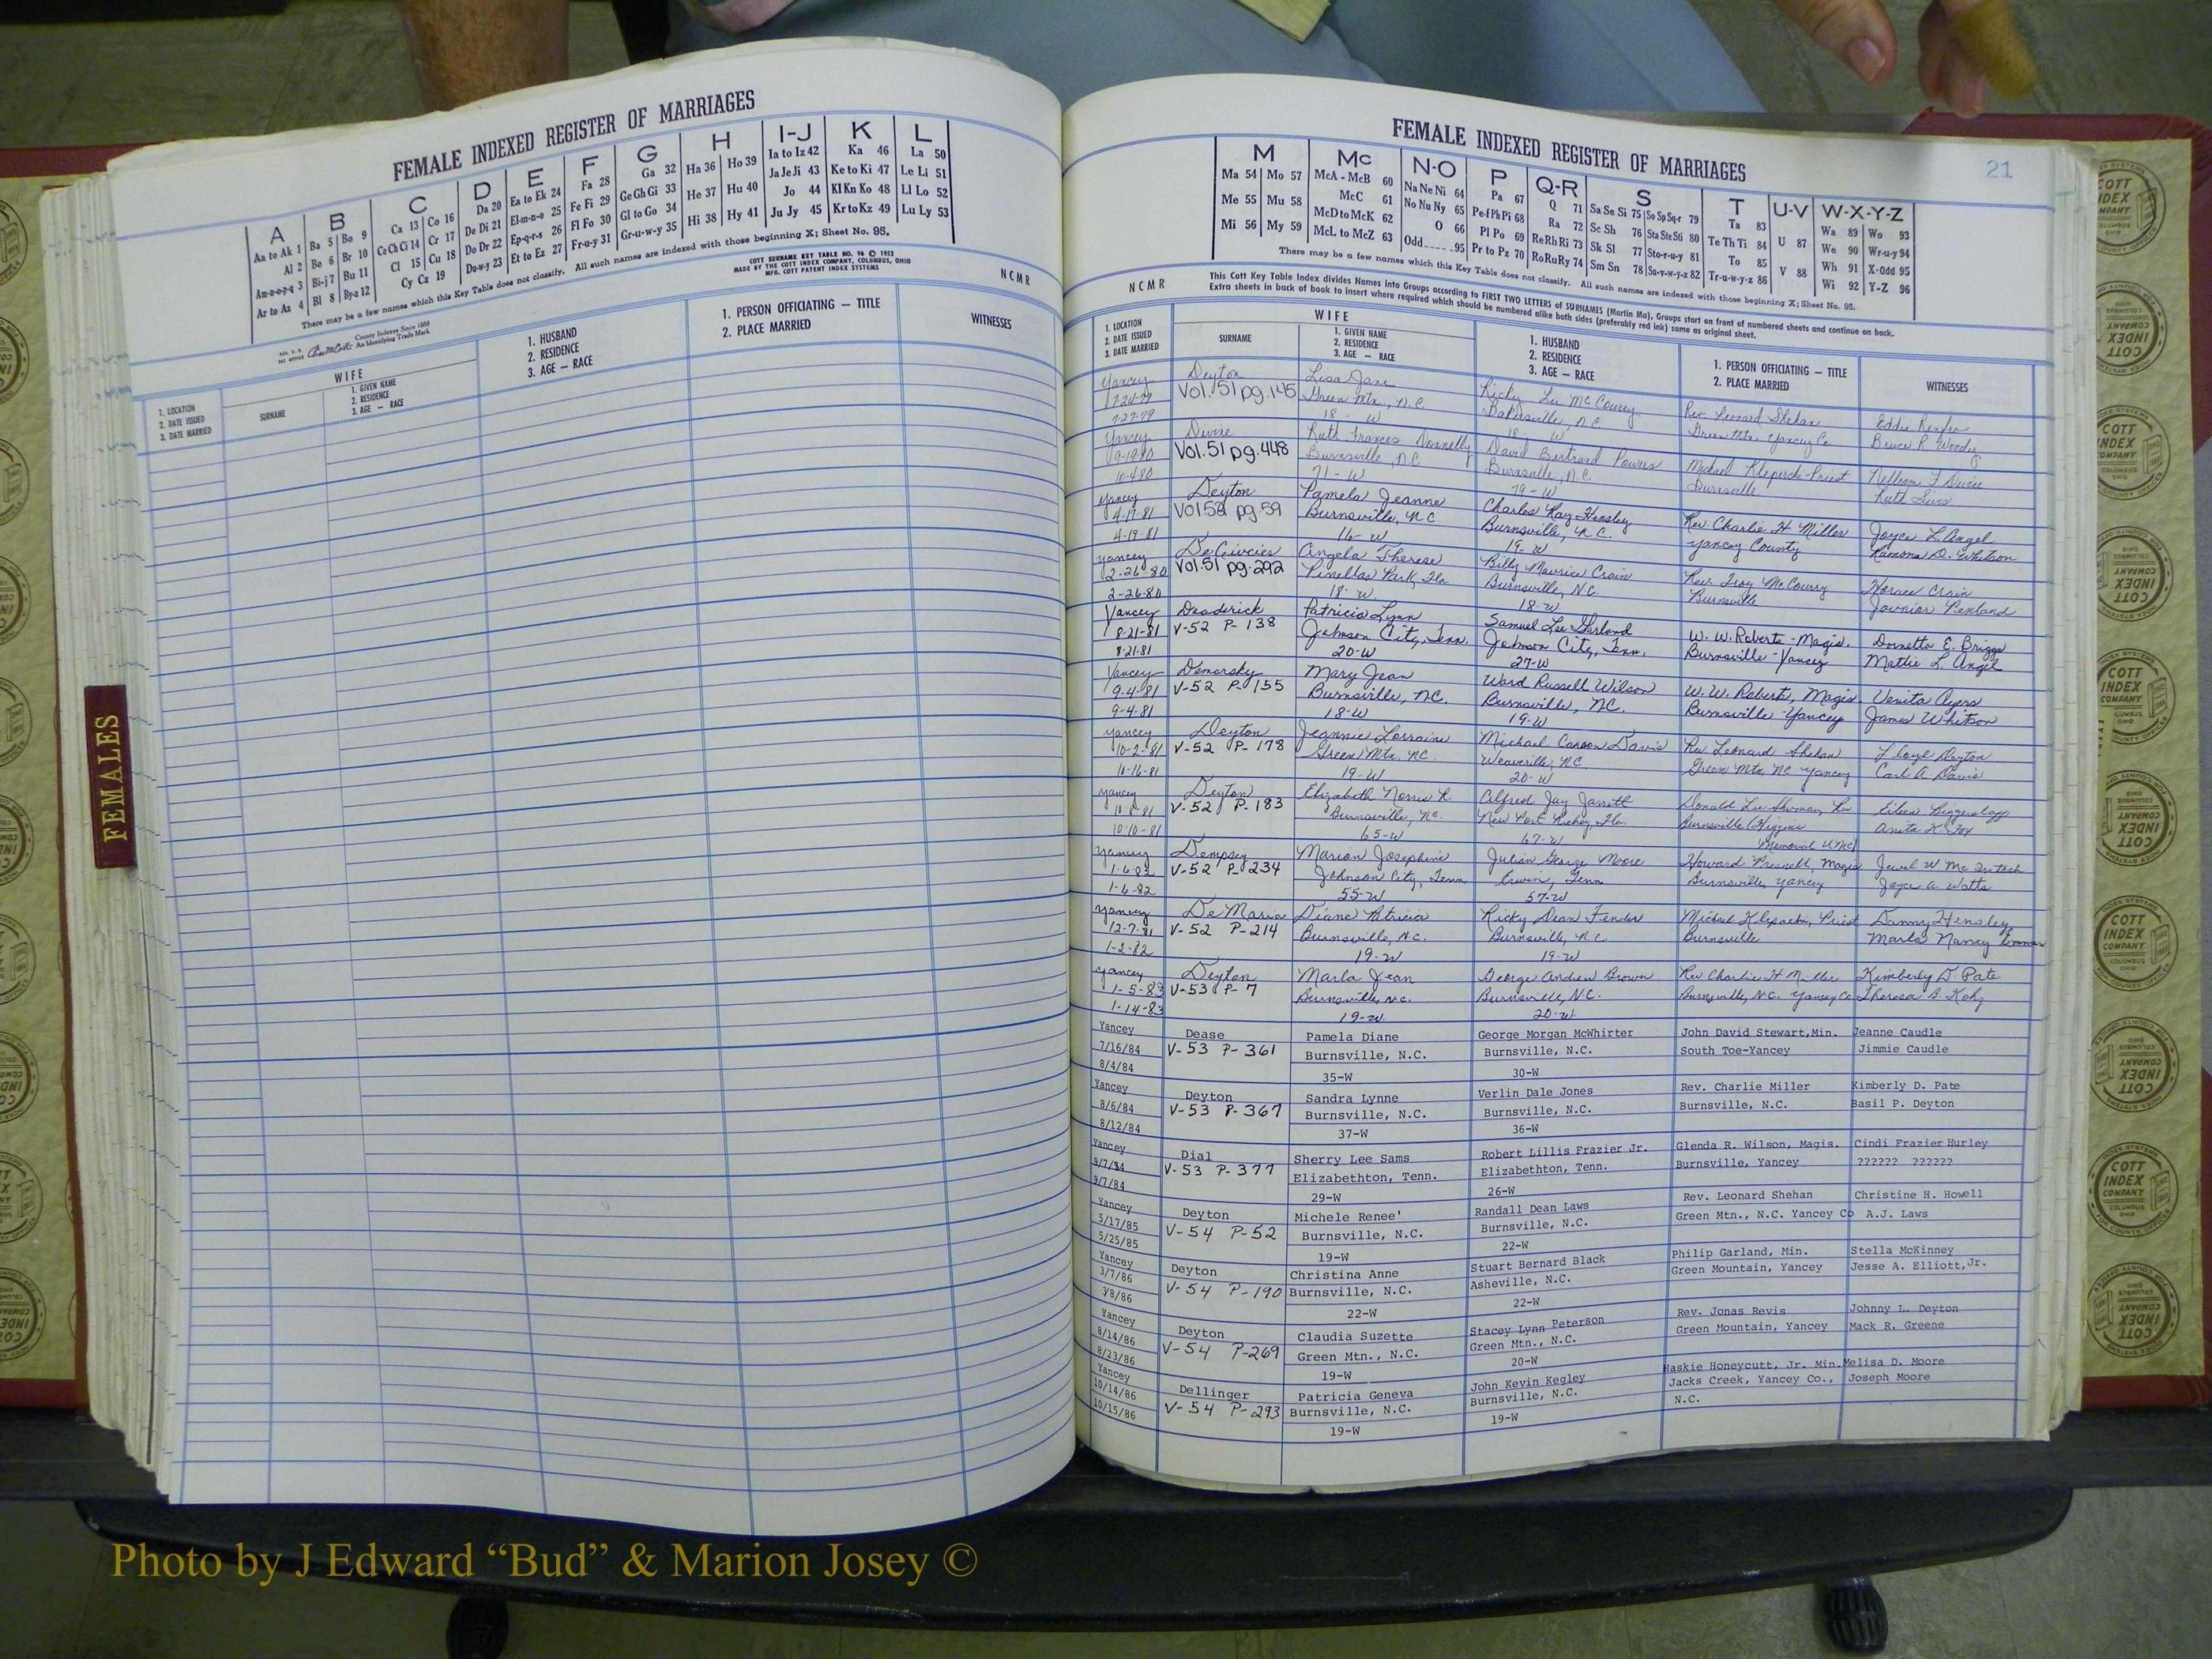 FEMALE INDEXED REGISTER OF MARRIAGES
A B C D E F G H I-J K L
Aa to Ak 1 Ba 5 Bo 9 Ca 13 Co 16 Da 20 Ea to Ek 24 Fa 28 Ga 32 Ha 36 Ho 39 Ia to Iz 42 Ka 46 La 50
Al 2 Be 6 Br 10 Ce Ch Ci 14 Cr 17 De Di 21 El-m-n-o 25 Fe Fi 29 Ge Gh Gi 33 He 37 Hu 40 Ja Je Ji 43 Ke to Ki 47 Le Li 51
Am-n-o-p-q 3 Bi-j 7 Bu 11 Cl 15 Cu 18 Do Dr 22 Ep-q-r-s 26 Fl Fo 30 Gl to Go 34 Hi 38 Hy 41 Jo 44 Kl Kn Ko 48 Ll Lo 52
Ar to Az 4 Bl 8 By-z 12 Cy Cz 19 Du-w-y 23 Et to Ez 27 Fr-u-y 31 Gr-u-w-y 35 Ju Jy 45 Kr to Kz 49 Lu Ly 53
There may be a few names which this Key Table does not classify. All such names are indexed with those beginning X; Sheet No. 95.
COTT SURNAME KEY TABLE NO. 96 © 1952
MADE BY THE COTT INDEX COMPANY, COLUMBUS, OHIO
MFG. COTT PATENT INDEX SYSTEMS
County Indexes Since 1888
An Identifying Trade Mark
NCMR
1. LOCATION
2. DATE ISSUED
3. DATE MARRIED
WIFE
SURNAME
1. GIVEN NAME
2. RESIDENCE
3. AGE — RACE
1. HUSBAND
2. RESIDENCE
3. AGE — RACE
1. PERSON OFFICIATING — TITLE
2. PLACE MARRIED
WITNESSES
FEMALES
FEMALE INDEXED REGISTER OF MARRIAGES
21
M Mc N-O P Q-R S T U-V W-X-Y-Z
Ma 54 Mo 57 McA - McB 60 Na Ne Ni 64 Pa 67 Q 71 Sa Se Si 75 So Sp Sq-r 79 Ta 83 Wa 89 Wo 93
Me 55 Mu 58 McC 61 No Nu Ny 65 Pe-f Ph Pi 68 Ra 72 Sc Sh 76 Sta Ste Sti 80 Te Th Ti 84 U 87 We 90 Wr-u-y 94
Mi 56 My 59 McD to McK 62 O 66 Pl Po 69 Re Rh Ri 73 Sk Sl 77 Sto-r-u-y 81 To 85 Wh 91 X-Odd 95
McL to McZ 63 Odd 95 Pr to Pz 70 Ro Ru Ry 74 Sm Sn 78 Su-v-w-y-z 82 Tr-u-w-y-z 86 V 88 Wi 92 Y-Z 96
There may be a few names which this Key Table does not classify. All such names are indexed with those beginning X; Sheet No. 95.
This Cott Key Table Index divides Names into Groups according to FIRST TWO LETTERS of SURNAMES (Martin Ma), Groups start on front of numbered sheets and continue on back.
Extra sheets in back of book to insert where required which should be numbered alike both sides (preferably red ink) same as original sheet.
NCMR
1. LOCATION
2. DATE ISSUED
3. DATE MARRIED
WIFE
SURNAME
1. GIVEN NAME
2. RESIDENCE
3. AGE — RACE
1. HUSBAND
2. RESIDENCE
3. AGE — RACE
1. PERSON OFFICIATING — TITLE
2. PLACE MARRIED
WITNESSES
Yancey Deyton Lisa Jane Ricky Lee McCourry Rev. Leonard Shehan Eddie Renfro
7-24-79 Vol. 51 pg. 145 Green Mtn., N.C. Bakersville, N.C. Green Mtn. Yancey Co Bruce R. Woody
7-27-79 18 - W 18 W
Yancey Divine Ruth Frances Donnelly David Bertrand Powers Michael
9-19-80 Vol. 51 pg. 448 Burnsville, N.C. Burnsville, N.C. Burnsville
10-4-80 71 - W 79 - W
Yancey Deyton Pamela Jeanne Charles Ray Hensley Rev. Charlie H Miller Joyce L. Angel
4-17-81 Vol 52 pg. 59 Burnsville, N.C Burnsville, N.C. Yancey County Ramona D. Whitson
4-19-81 16 - W 19 - W
Yancey Angela Therese Billy Maurice Crain Rev. Troy McCourry Horace Crain
2-26-80 Vol. 51 pg. 292 Pinellas Park, Fla. Burnsville, N.C. Burnsville Penland
2-26-80 18 - W 18 - W
Yancey Deaderick Patricia Lynn Samuel Lee Garland W. W. Roberts - Magis. Donnetta E. Briggs
8-21-81 V-52 P- 138 Johnson City, Tenn. Johnson City, Tenn. Burnsville - Yancey Mattie L. Angel
8-21-81 20-W 27-W
Yancey Demorsky Mary Jean Ward Russell Wilson W. W. Roberts, Magis Venita Ayers
9-4-81 V-52 P- 155 Burnsville, NC. Burnsville, NC. Burnsville - Yancey James Whitson
9-4-81 18-W 19-W
Yancey Deyton Jeannie Lorraine Michael Carson Davis Rev Leonard Shehan Floyd Deyton
10-2-81 V-52 P- 178 Green Mtn. NC Weaverville, NC Green Mtn, NC Yancey Carl A. Davis
10-16-81 19-W 20-W
Yancey Deyton Elizabeth Norris R. Alfred Jay Jarrett Donald Lee
10-8-81 V-52 P- 183 Burnsville, NC. New Port Richey, Fla. Burnsville (Higgins Anita K. Fox
10-10-81 65-W 67-W Memorial UMC)
Yancey Dempsey Marion Josephine Julian George Moore Howard Presnell, Magis Jewel W McIntosh
1-6-82 V-52 P- 234 Johnson City, Tenn Erwin, Tenn Burnsville, Yancey Joyce A. Watts
1-6-82 55-W 57-W
Yancey DeMaria Diane Patricia Ricky Dean Fender Michael Klepacki, Priest Danny Hensley
12-7-81 V-52 P-214 Burnsville, N.C. Burnsville, N.C. Burnsville Marla Nancy
1-2-82 19-W 19-W
Yancey Deyton Marla Jean George Andrew Brown Rev Charlie H Miller Kimberly D Pate
1-5-83 V-53 P- 7 Burnsville, N.C. Burnsville, N.C. Burnsville, N.C. Yancey Co Theresa B.
1-14-83 19-W 20-W
Yancey Dease Pamela Diane George Morgan McWhirter John David Stewart,Min. Jeanne Caudle
7/16/84 V-53 P- 361 Burnsville, N.C. Burnsville, N.C. South Toe-Yancey Jimmie Caudle
8/4/84 35-W 30-W
Yancey Deyton Sandra Lynne Verlin Dale Jones Rev. Charlie Miller Kimberly D. Pate
8/6/84 V-53 P- 367 Burnsville, N.C. Burnsville, N.C. Burnsville, N.C. Basil P. Deyton
8/12/84 37-W 36-W
Yancey Dial Sherry Lee Sams Robert Lillis Frazier Jr. Glenda R. Wilson, Magis. Cindi Frazier Hurley
9/7/84 V-53 P- 377 Elizabethton, Tenn. Elizabethton, Tenn. Burnsville, Yancey ?????? ??????
9/7/84 29-W 26-W
Yancey Deyton Michele Renee' Randall Dean Laws Rev. Leonard Shehan Christine H. Howell
5/17/85 V-54 P-52 Burnsville, N.C. Burnsville, N.C. Green Mtn., N.C. Yancey Co A.J. Laws
5/25/85 19-W 22-W
Yancey Deyton Christina Anne Stuart Bernard Black Philip Garland, Min. Stella McKinney
3/7/86 V-54 P-190 Burnsville, N.C. Asheville, N.C. Green Mountain, Yancey Jesse A. Elliott,Jr.
3/8/86 22-W 22-W
Yancey Deyton Claudia Suzette Stacey Lynn Peterson Rev. Jonas Revis Johnny L. Deyton
8/14/86 V-54 P-269 Green Mtn., N.C. Green Mtn., N.C. Green Mountain, Yancey Mack R. Greene
8/23/86 19-W 20-W
Yancey Dellinger Patricia Geneva John Kevin Kegley Haskie Honeycutt, Jr. Min. Melisa D. Moore
10/14/86 V-54 P-293 Burnsville, N.C. Burnsville, N.C. Jacks Creek, Yancey Co., Joseph Moore
10/15/86 19-W 19-W N.C.
COTT INDEX COMPANY COLUMBUS OHIO
Photo by J Edward “Bud” & Marion Josey ©